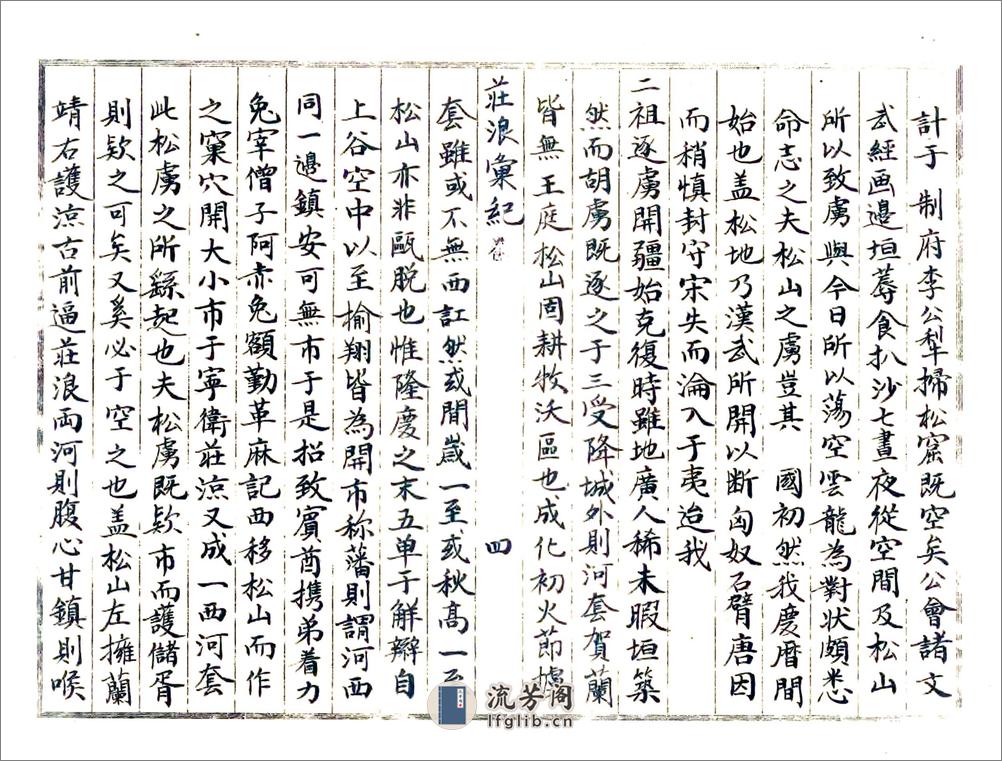 計于 制府李公犁掃松窟既空矣公會諸文
武經画邊垣蓐食扒沙七晝夜從空間及松山
所以致虜與今日所以蕩空雲龍為對狀頗悉
命志之夫松山之虜豈其 國初然我慶曆間
始也盖松地乃漢武所開以断匈奴右臂唐因
而稍慎封守宋失而淪入于夷迨我
二祖逐虜開疆始克復時雖地廣人稀未暇垣築
然而胡虜既逐之于三受降城外則河套賀蘭
皆無王庭松山固耕牧沃區也成化初火節據
莊浪彙紀 四
套雖或不無西訌然或間歲一至或秋高一至
松山亦非甌脱也惟隆慶之末五单于解辮自
上谷空中以至榆翔皆為開市称藩則謂河西
同一邊鎮安可無市于是招致賓酋携弟着力
兔宰僧子阿赤兔額勤革麻記西移松山而作
之窠穴開大小市于寧衛莊涼又成一西河套
此松虜之所繇起也夫松虜既欵市而護儲胥
則欵之可矣又奚必于空之也盖松山左擁蘭
靖右護涼古前逼莊浪両河則腹心甘鎮則喉
流芳阁
lfglib.cn